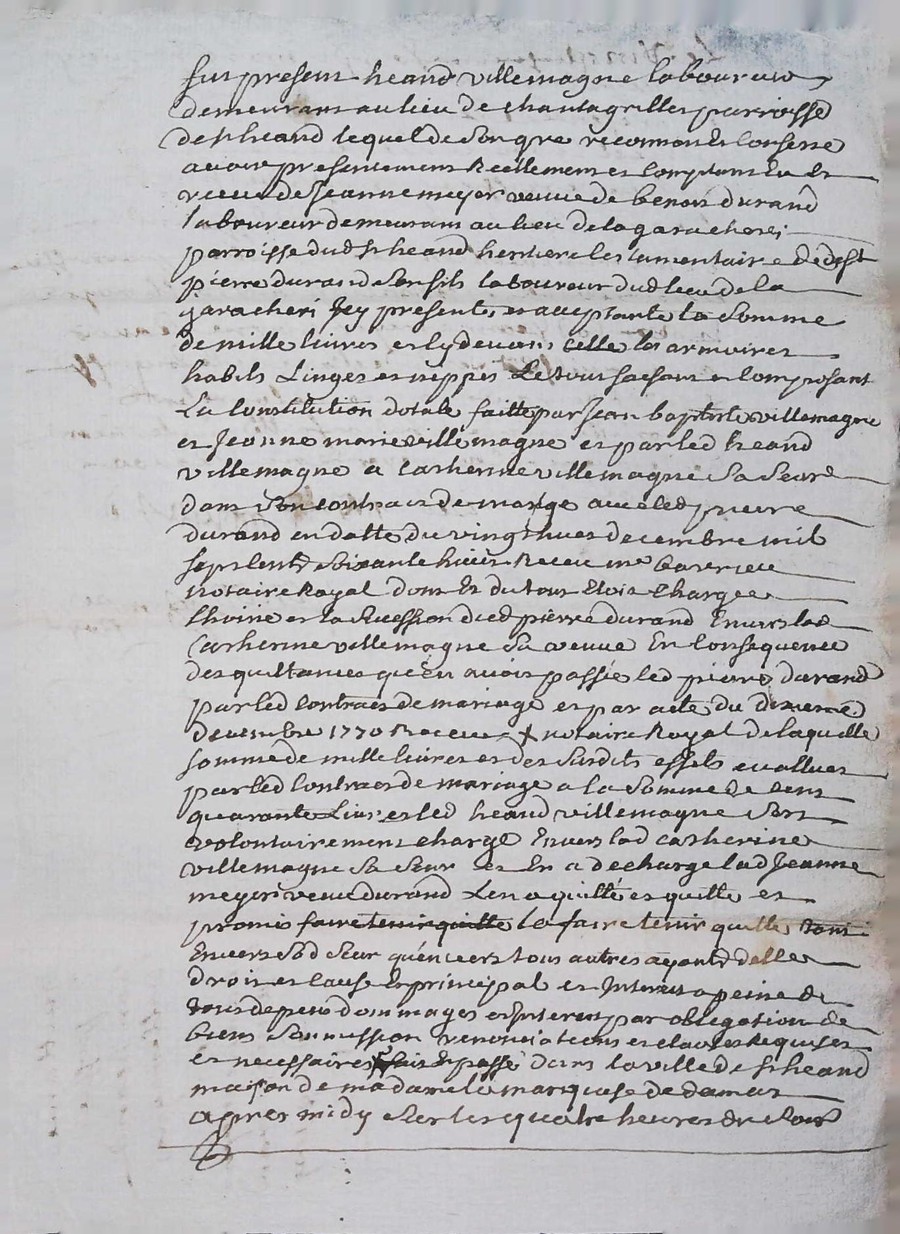 fut present heand villemagne laboureur
demeurant au lieu de chantagrillet parroisse
de st heand lequel de son gre reconnoit et confesse
avoir presentement reellement et comptant eu et
receu de Jeanne meyer veuve de benoit durand
laboureur demeurant au lieu de la garacheri
parroisse dud st heand heritiere testamentaire de deft
pierre durand son fils laboureur dud lieu de la
garacheri Icy presente et acceptante la somme
de mille livres et cy devant celle les armoires
habits Linges et nippes Le tout faisant et composant
La Constitution dotale faitte par Jean baptiste villemagne
et Jeanne marie villemagne et par led heand
villemagne a catherine villemagne sa seure
dans son contrait de mariage avec led pierre
durand en datte du vingt huit decembre mil
sept cent soixante huit Receu me
notaire Royal dont et du tout etoit Chargée
L'hoirie et la sucession dud pierre durand Envers lad
Catherine villemagne sa veuve En Consequence
des quittances qu'en avoit passés led pierre durand
par led contrait de mariage et par acte du dixieme
decembre 1770 Receu + notaire Royal de laquelle
somme de mille livres et des susdits effets evallués
par led Contrait de mariage a la somme de cent
quarante Livres led heand villemagne s'est
volontairement chargé Envers lad catherine
villemagne sa seur et En a dechargé lad Jeanne
meyer veuve durand L'en a quitté et quitte et
promis faire tenir quitte la faire tenir quitte tant
Envers sad seur qu'envers tous autres ayant d'elle
droit et cause En principal et Interest a peine de
tous depens dommages et Interest par obligation de
biens soumission renonciations et clauses Requises
et necessaires fait et passé dans la ville de st heand
maison de madame la marquise de damas
apres midy sur les quatre heures du soir